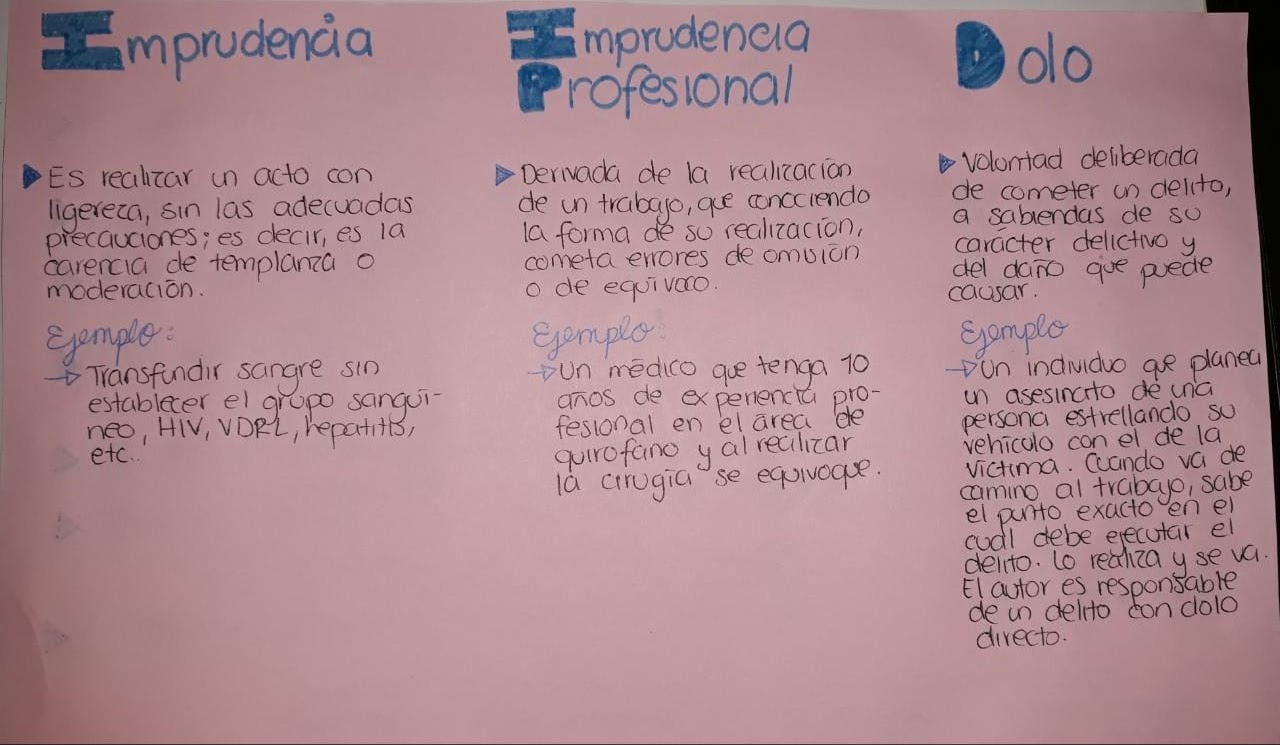 Imprudencia
Es realizar un acto con
ligereza, sin las adecuadas
precauciones; es decir, es la
carencia de templanza o
moderación.
Ejemplo:
Transfundir sangre sin
establecer el grupo sanguí-
neo, HIV, VDRL, hepatitis,
etc..
Imprudencia
Profesional
Derivada de la realización
de un trabajo, que conociendo
la forma de su realización,
cometa errores de omisión
o de equívoco.
Ejemplo:
Un médico que tenga 10
años de experiencia pro-
fesional en el área de
quirofano y al realizar
la cirugía se equivoque.
Dolo
Voluntad deliberada
de cometer un delito,
a sabiendas de su
carácter delictivo y
del daño que puede
causar.
Ejemplo
Un individuo que planea
un asesinato de una
persona estrellando su
vehículo con el de la
víctima. Cuando va de
camino al trabajo, sabe
el punto exacto en el
cual debe ejecutar el
delito. Lo realiza y se va.
El autor es responsable
de un delito con dolo
directo.